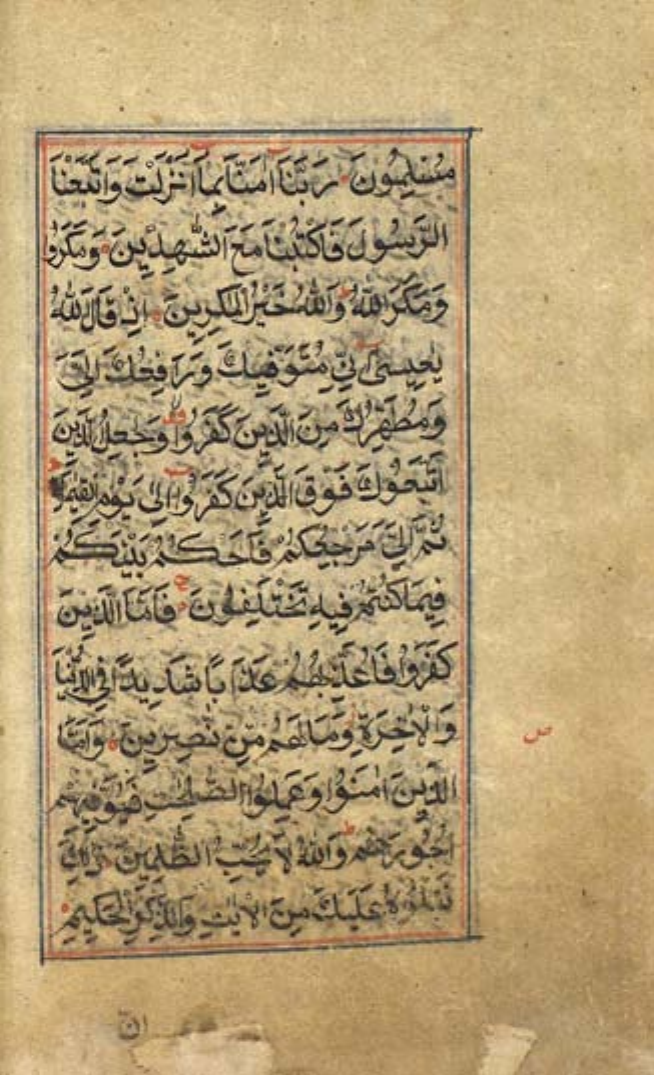 مُسْلِمُونَ رَبَّنَا اٰمَنَّا بِمَا اَنْزَلْتَ وَاتَّبَعْنَا
الرَّسُولَ فَاكْتُبْنَا مَعَ الشّٰهِدِينَ وَمَكَرُوا
وَمَكَرَ اللّٰهُ ط وَاللّٰهُ خَيْرُ الْمَاكِرِينَ اِذْ قَالَ اللّٰهُ
يٰعِيسٰى اِنِّي مُتَوَفِّيكَ وَرَافِعُكَ اِلَيَّ
وَمُطَهِّرُكَ مِنَ الَّذِينَ كَفَرُوا وَجَاعِلُ الَّذِينَ
اتَّبَعُوكَ فَوْقَ الَّذِينَ كَفَرُوا اِلٰى يَوْمِ الْقِيٰمَةِ ج
ثُمَّ اِلَيَّ مَرْجِعُكُمْ فَاَحْكُمُ بَيْنَكُمْ
فِيمَا كُنْتُمْ فِيهِ تَخْتَلِفُونَ ج فَاَمَّا الَّذِينَ
كَفَرُوا فَاُعَذِّبُهُمْ عَذَابًا شَدِيدًا فِي الدُّنْيَا
وَالْاٰخِرَةِ وَمَا لَهُمْ مِنْ نٰصِرِينَ وَاَمَّا
ص
الَّذِينَ اٰمَنُوا وَعَمِلُوا الصّٰلِحٰتِ فَيُوَفِّيهِمْ
اُجُورَهُمْ ط وَاللّٰهُ لَا يُحِبُّ الظّٰلِمِينَ ذٰلِكَ
نَتْلُوهُ عَلَيْكَ مِنَ الْاٰيٰتِ وَالذِّكْرِ الْحَكِيمِ
انّ